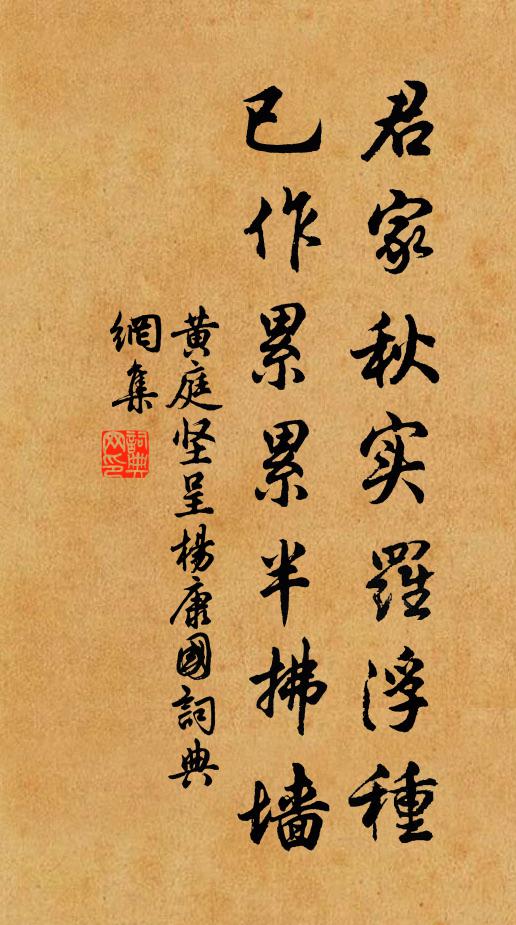 君家秋实羅浮種
已作累累半拂墙
黄庭坚呈楊康國詞典
網集
詞典网印